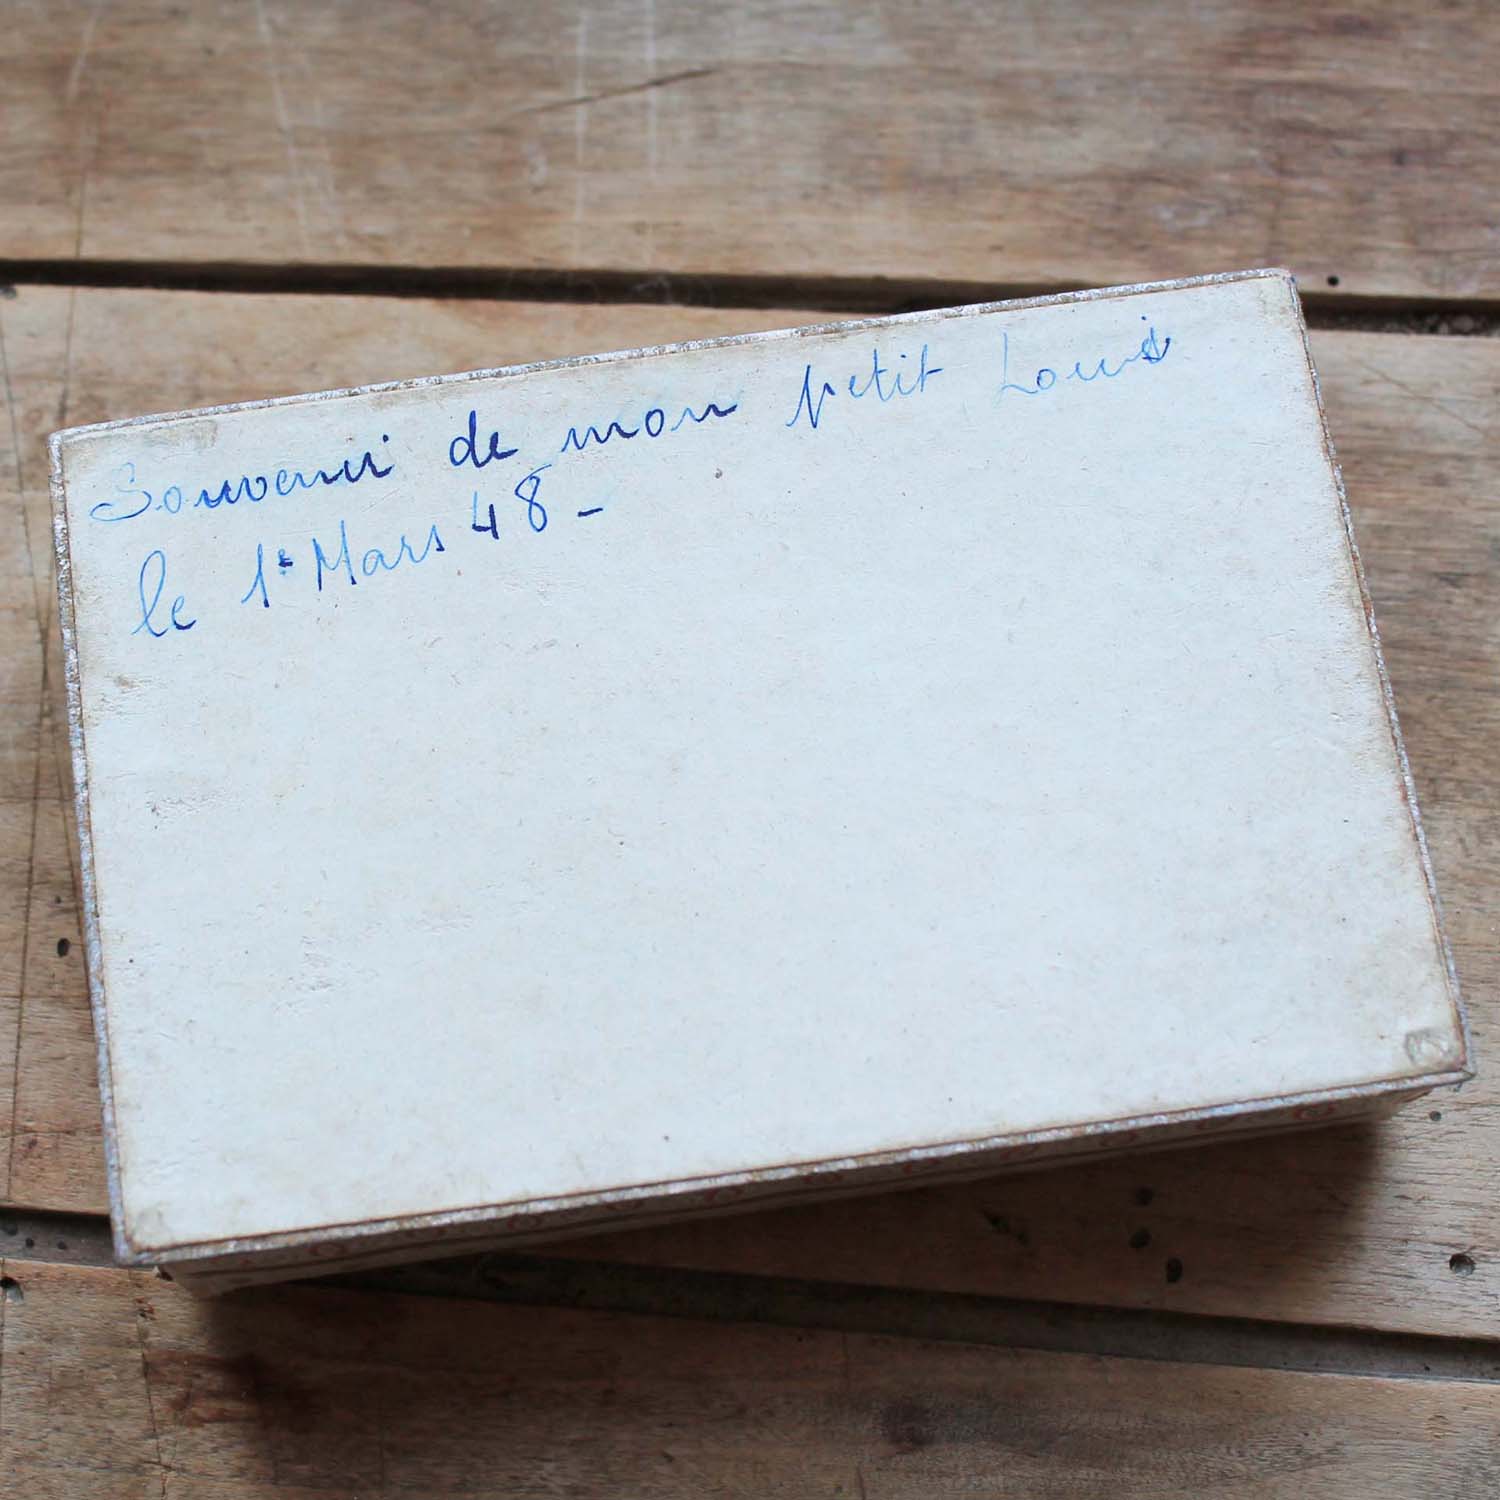 Souvenir de mon petit Louis
le 1e Mars 48 -